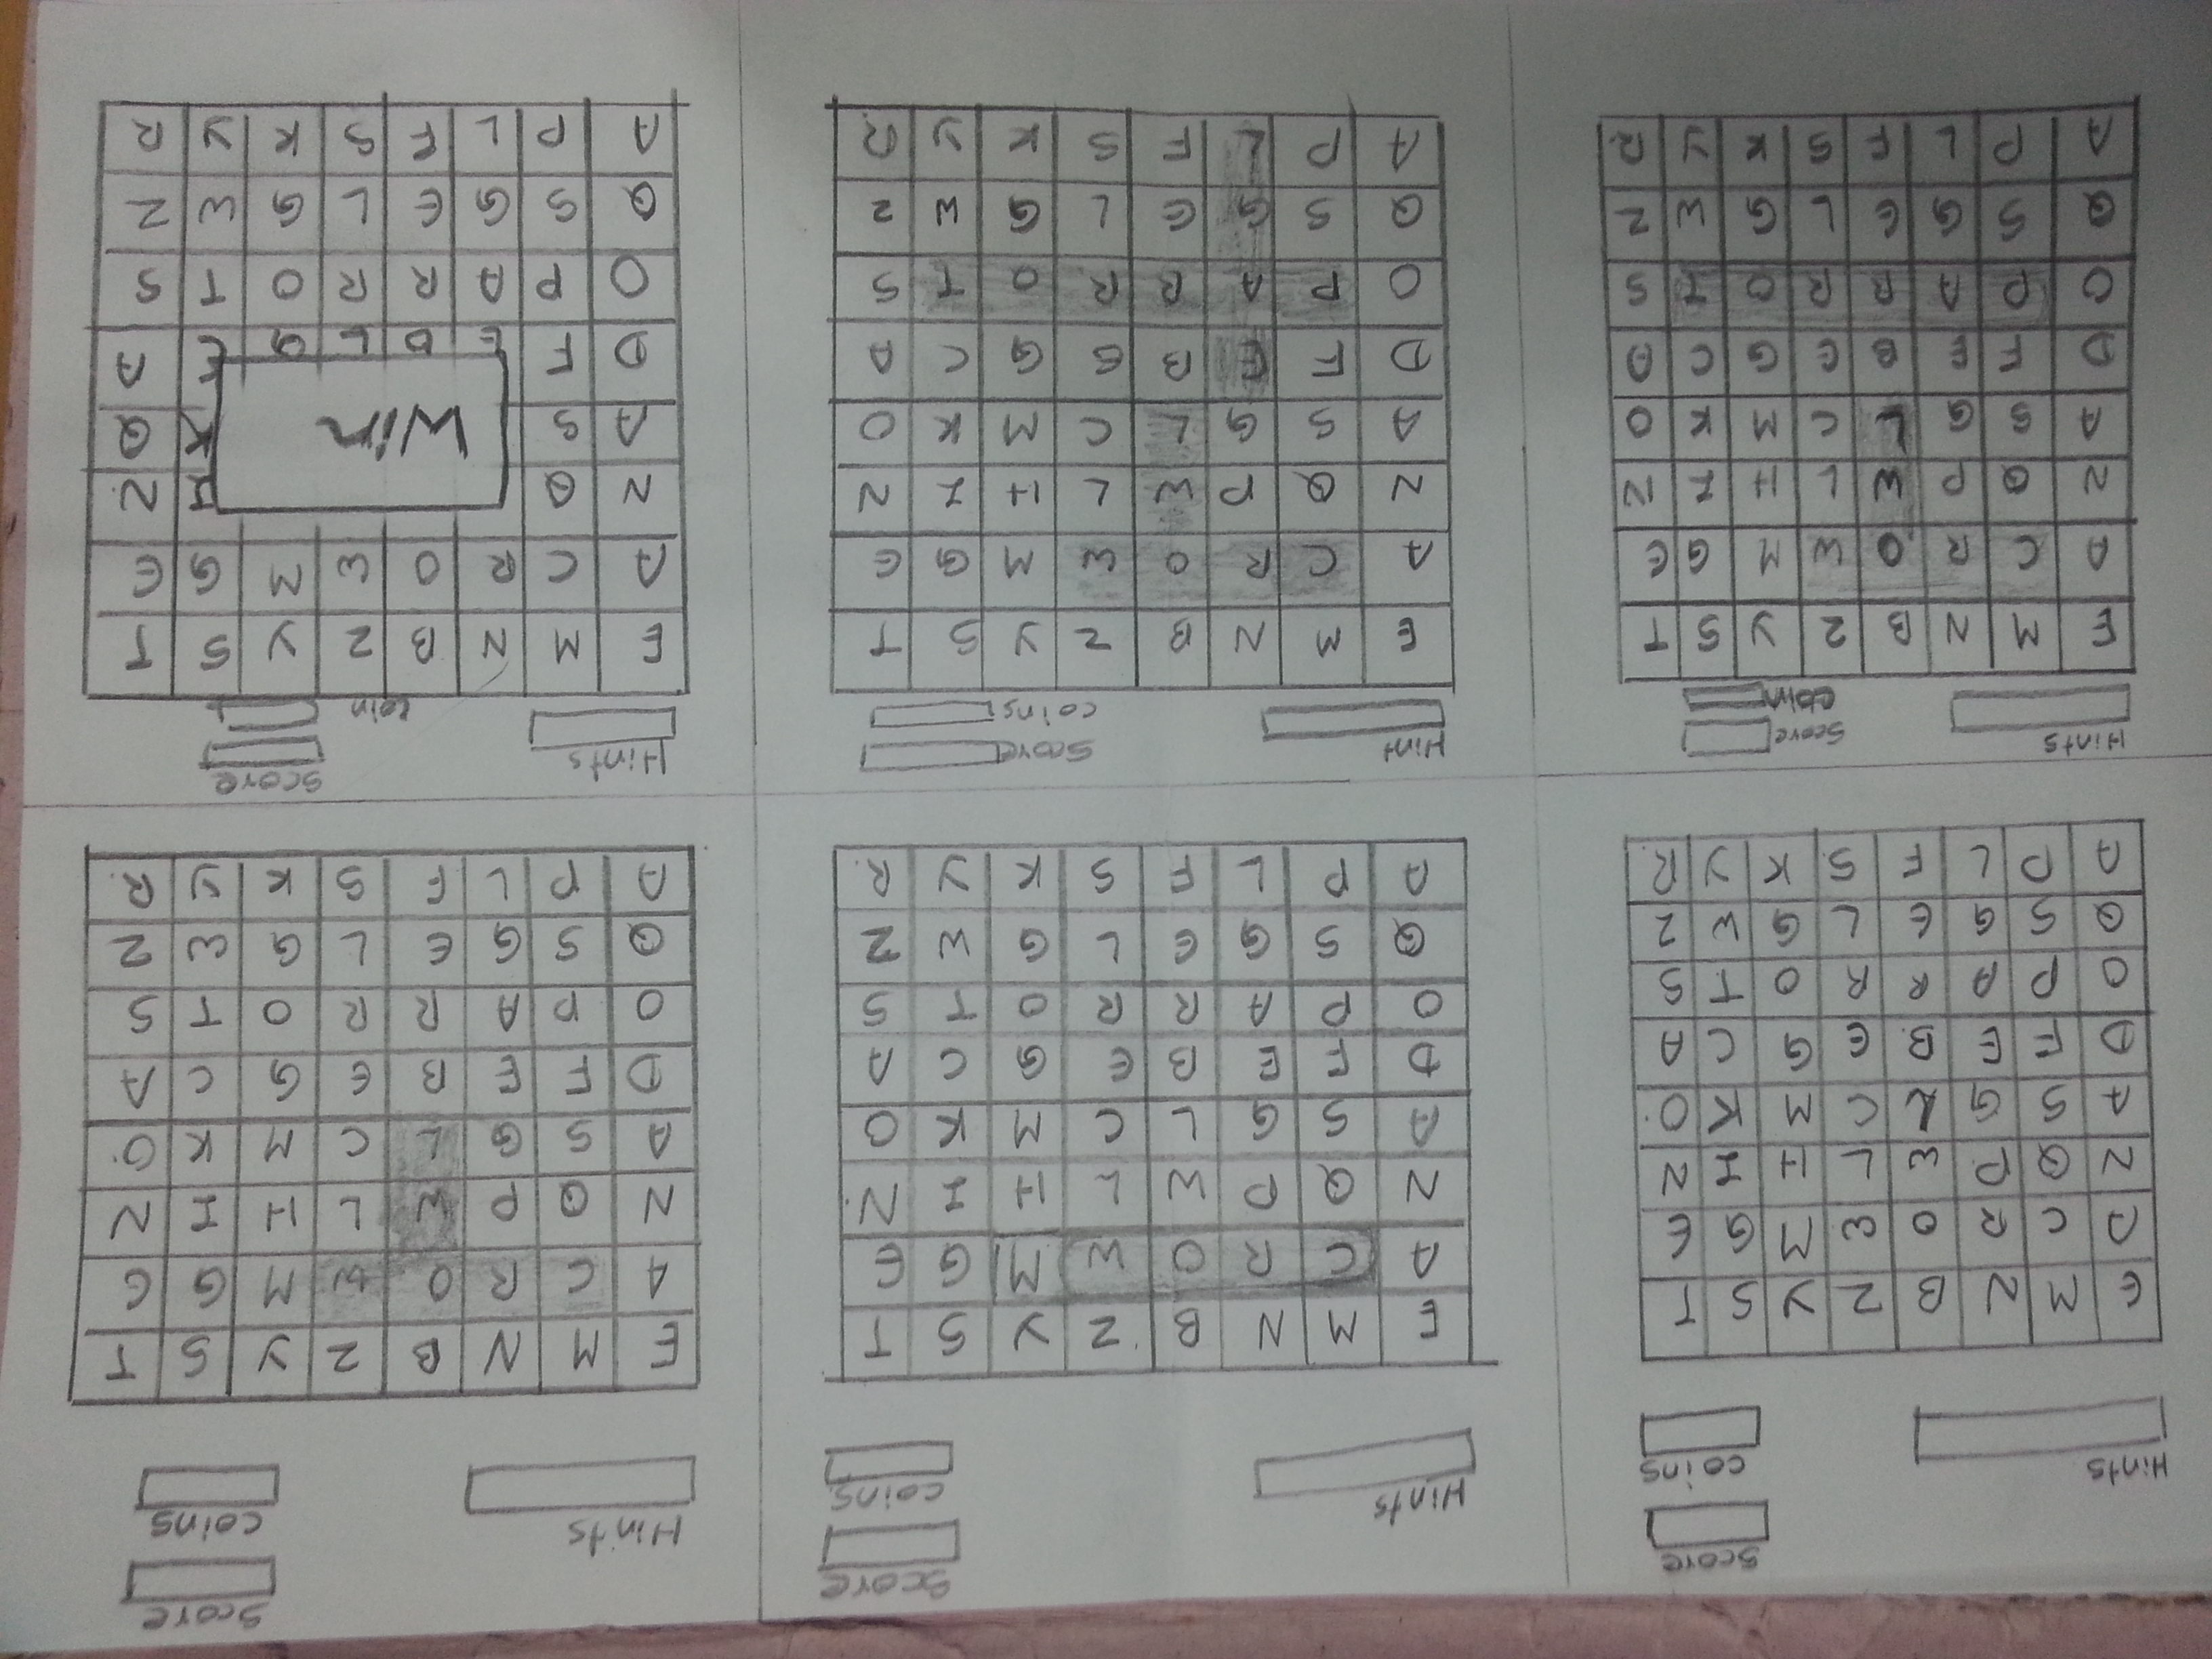 Score
Hints
coins
E M N B Z Y S T
A C R O W M G E
N Q P W L H I N
A S G L C M K O
D F E B E G C A
O P A R R O T S
Q S G E L G W Z
A P L F S K Y R
Score
Hints
coins
E M N B Z Y S T
A C R O W M G E
N Q P W L H I N
A S G L C M K O
D F E B E G C A
O P A R R O T S
Q S G E L G W Z
A P L F S K Y R
Score
Hints
coins
E M N B Z Y S T
A C R O W M G G
N Q P W L H I N
A S G L C M K O
D F E B E G C A
O P A R R O T S
Q S G E L G W Z
A P L F S K Y R
Score
Hints
coin
E M N B Z Y S T
A C R O W M G E
N Q P W L H I N
A S G L C M K O
D F E B E G C A
O P A R R O T S
Q S G E L G W Z
A P L F S K Y R
Score
Hint
coins
E M N B Z Y S T
A C R O W M G E
N Q P W L H I N
A S G L C M K O
D F E B G G C A
O P A R R O T S
Q S G E L G W Z
A P L F S K Y R
Score
Hints
coin
E M N B Z Y S T
A C R O W M G E
N Q I N
Win
A S K Q
D F E D L G A
O P A R R O T S
Q S G E L G W Z
A P L F S K Y R